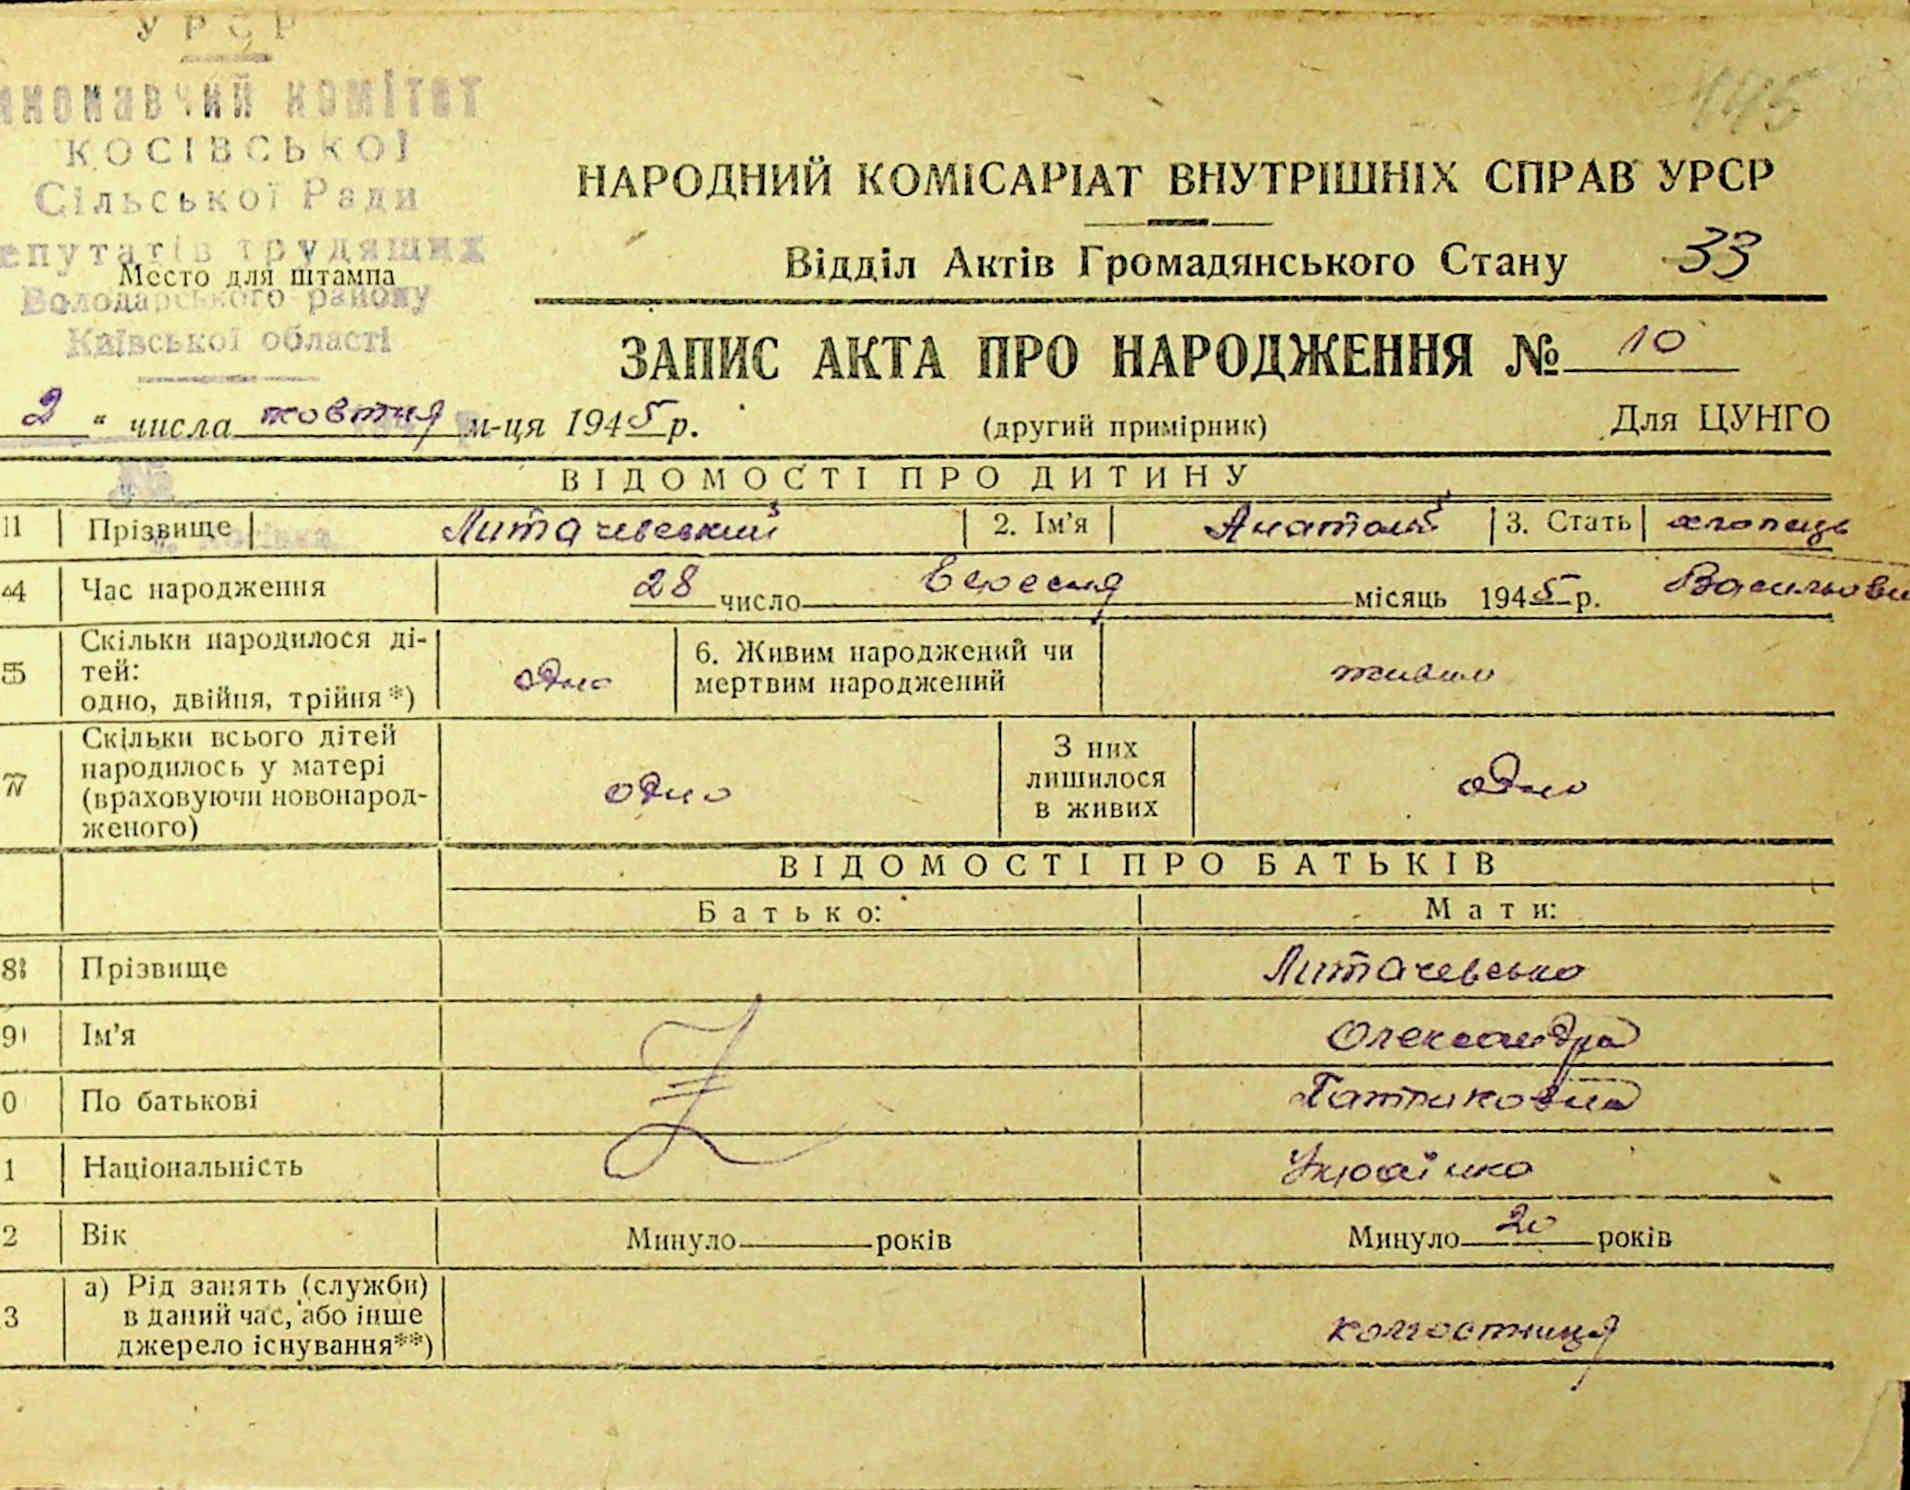 УРСР
иконавчий комітет
КОСІВСЬКОЇ
Сільської Ради
епутатів трудящих
Место для штампа
Володарського району
Київської області
145
НАРОДНИЙ КОМІСАРІАТ ВНУТРІШНІХ СПРАВ УРСР
Відділ Актів Громадянського Стану 33
ЗАПИС АКТА ПРО НАРОДЖЕННЯ № 10
2 " числа жовтня м-ця 1945 р. (другий примірник) Для ЦУНГО
ВІДОМОСТІ ПРО ДИТИНУ
1 Прізвище Литачевський 2. Ім'я Анатолій 3. Стать хлопець
4 Час народження 28 число вересня місяць 1945 р. Васильови
5 Скільки народилося ді-
тей:
одно, двійня, трійня*) одно 6. Живим народжений чи
мертвим народжений живим
7 Скільки всього дітей
народилось у матері
(враховуючи новонарод-
женого) одно З них
лишилося
в живих одно
ВІДОМОСТІ ПРО БАТЬКІВ
Батько: Мати:
8 Прізвище Литачевська
9 Ім'я Олександра
0 По батькові
1 Національність Українка
2 Вік Минуло років Минуло 20 років
3 а) Рід занять (служби)
в даний час, або інше
джерело існування**) колгостниця